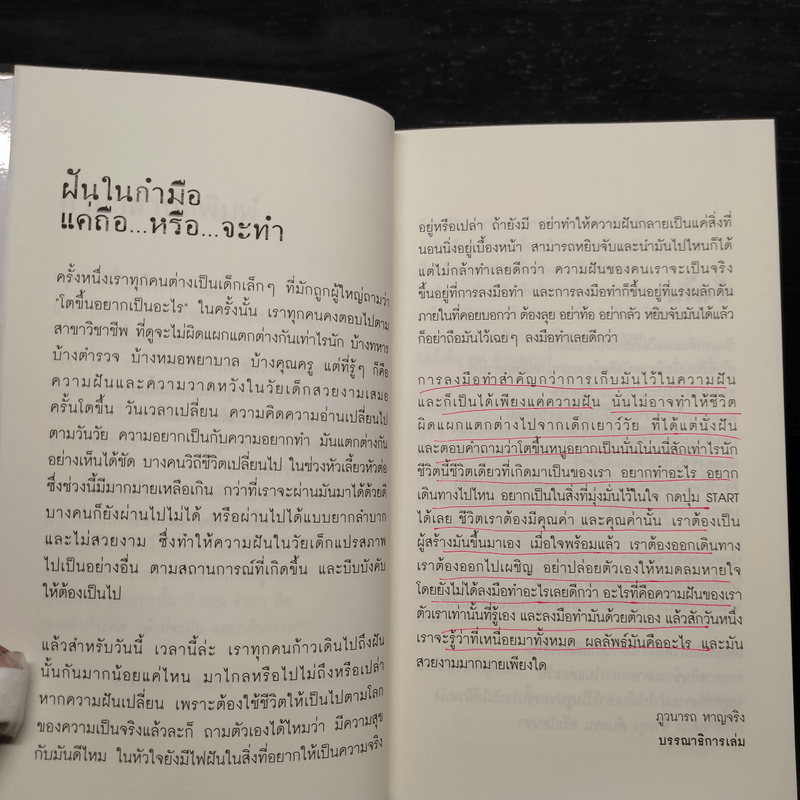 ฝันในกำมือ
แค่ถือ...หรือ...จะทำ
ครั้งหนึ่งเราทุกคนต่างเป็นเด็กเล็กๆ ที่มักถูกผู้ใหญ่ถามว่า
"โตขึ้นอยากเป็นอะไร" ในครั้งนั้น เราทุกคนคงตอบไปตาม
สาขาวิชาชีพ ที่ดูจะไม่ผิดแผกแตกต่างกันเท่าไรนัก บ้างทหาร
บ้างตำรวจ บ้างหมอพยาบาล บ้างคุณครู แต่ที่รู้ๆ ก็คือ
ความฝันและความวาดหวังในวัยเด็กสวยงามเสมอ
ครั้นโตขึ้น วันเวลาเปลี่ยน ความคิดความอ่านเปลี่ยนไป
ตามวันวัย ความอยากเป็นกับความอยากทำ มันแตกต่างกัน
อย่างเห็นได้ชัด บางคนวิถีชีวิตเปลี่ยนไป ในช่วงหัวเลี้ยวหัวต่อ
ซึ่งช่วงนี้มีมากมายเหลือเกิน กว่าที่เราจะผ่านมันมาได้ด้วยดี
บางคนก็ยังผ่านไปไม่ได้ หรือผ่านไปได้แบบยากลำบาก
และไม่สวยงาม ซึ่งทำให้ความฝันในวัยเด็กแปรสภาพ
ไปเป็นอย่างอื่น ตามสถานการณ์ที่เกิดขึ้น และบีบบังคับ
ให้ต้องเป็นไป
แล้วสำหรับวันนี้ เวลานี้ล่ะ เราทุกคนก้าวเดินไปถึงฝัน
นั้นกันมากน้อยแค่ไหน มาไกลหรือไปไม่ถึงหรือเปล่า
หากความฝันเปลี่ยน เพราะต้องใช้ชีวิตให้เป็นไปตามโลก
ของความเป็นจริงแล้วละก็ ถามตัวเองได้ไหมว่า มีความสุข
กับมันดีไหม ในหัวใจยังมีไฟฝันในสิ่งที่อยากให้เป็นความจริง
อยู่หรือเปล่า ถ้ายังมี อย่าทำให้ความฝันกลายเป็นแค่สิ่งที่
นอนนิ่งอยู่เบื้องหน้า สามารถหยิบจับและนำมันไปไหนก็ได้
แต่ไม่กล้าทำเลยดีกว่า ความฝันของคนเราจะเป็นจริง
ขึ้นอยู่ที่การลงมือทำ และการลงมือทำก็ขึ้นอยู่ที่แรงผลักดัน
ภายในที่คอยบอกว่า ต้องลุย อย่าท้อ อย่ากลัว หยิบจับมันได้แล้ว
ก็อย่าถือมันไว้เฉยๆ ลงมือทำเลยดีกว่า
การลงมือทำสำคัญกว่าการเก็บมันไว้ในความฝัน
และก็เป็นได้เพียงแค่ความฝัน นั่นไม่อาจทำให้ชีวิต
ผิดแผกแตกต่างไปจากเด็กเยาว์วัย ที่ได้แต่นั่งฝัน
และตอบคำถามว่าโตขึ้นหนูอยากเป็นนั่นโน่นนี่สักเท่าไรนัก
ชีวิตนี้ชีวิตเดียวที่เกิดมาเป็นของเรา อยากทำอะไร อยาก
เดินทางไปไหน อยากเป็นในสิ่งที่มุ่งมั่นไว้ในใจ กดปุ่ม START
ได้เลย ชีวิตเราต้องมีคุณค่า และคุณค่านั้น เราต้องเป็น
ผู้สร้างมันขึ้นมาเอง เมื่อใจพร้อมแล้ว เราต้องออกเดินทาง
เราต้องออกไปเผชิญ อย่าปล่อยตัวเองให้หมดลมหายใจ
โดยยังไม่ได้ลงมือทำอะไรเลยดีกว่า อะไรที่คือความฝันของเรา
ตัวเราเท่านั้นที่รู้เอง และลงมือทำมันด้วยตัวเอง แล้วสักวันหนึ่ง
เราจะรู้ว่าที่เหนื่อยมาทั้งหมด ผลลัพธ์มันคืออะไร และมัน
สวยงามมากมายเพียงใด
ภูวนารถ หาญจริง
บรรณาธิการเล่ม